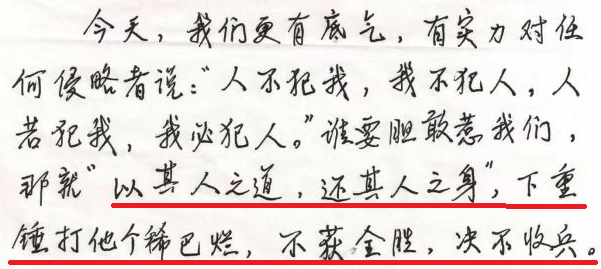 今天，我们更有底气，有实力对任
何侵略者说：“人不犯我，我不犯人，人
若犯我，我必犯人。”谁要胆敢惹我们，
那就“以其人之道，还其人之身”，下重
锤打他个稀巴烂，不获全胜，决不收兵。